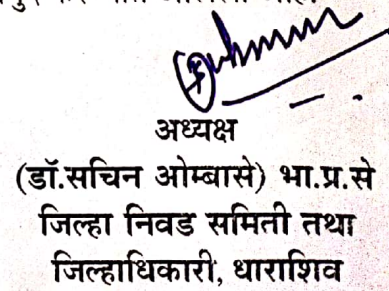 अध्यक्ष
(डॉ.सचिन ओम्बासे) भा.प्र.से
जिल्हा निवड समिती तथा
जिल्हाधिकारी, धाराशिव